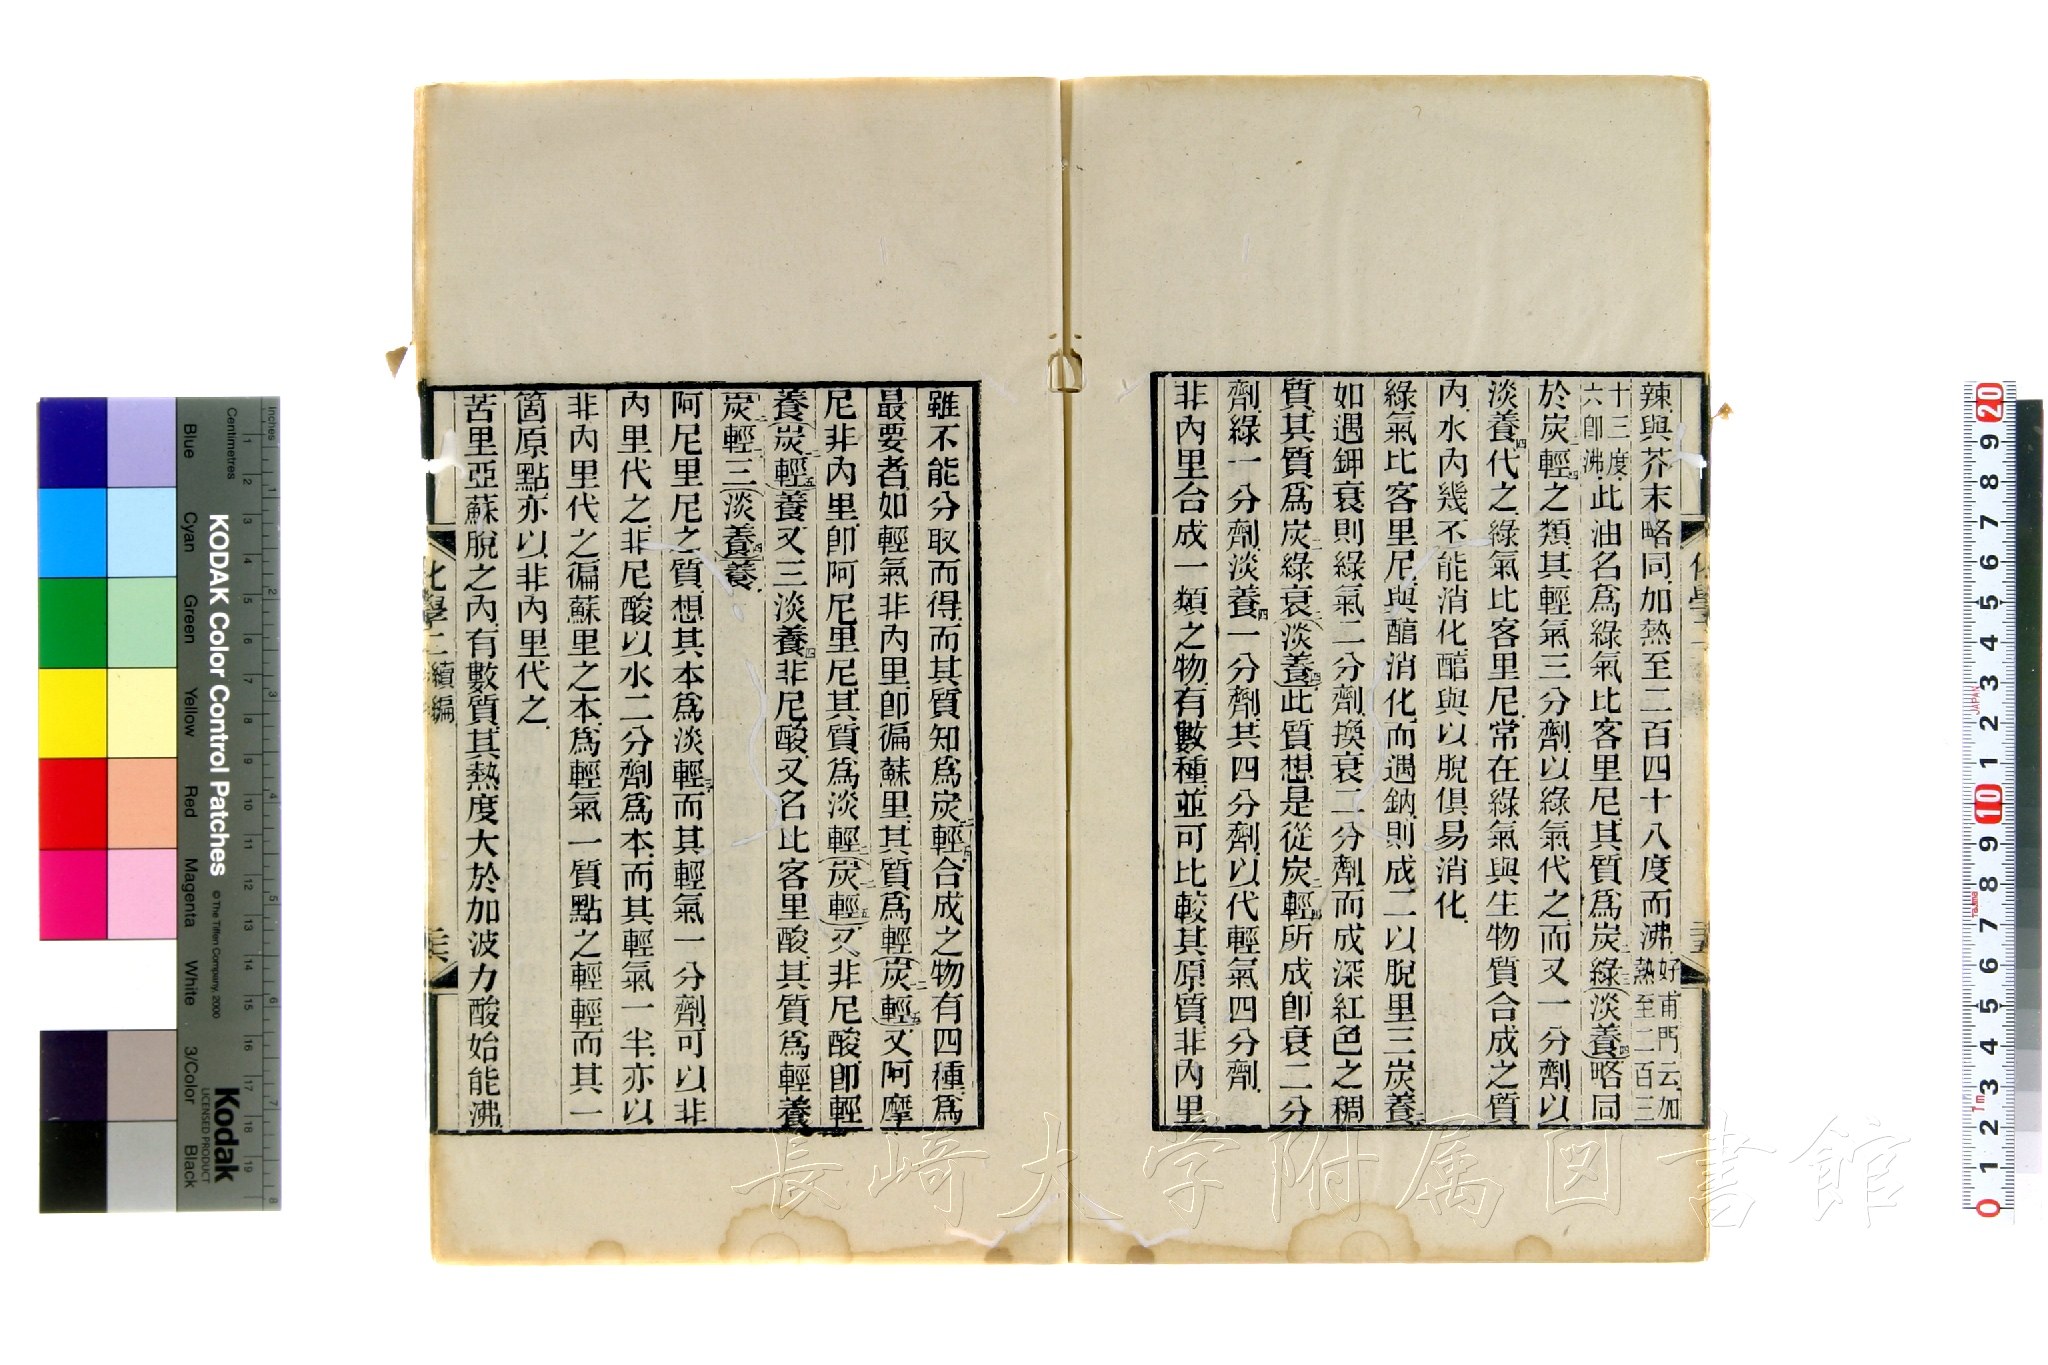 辣與芥末略同加熱至二百四十八度而沸好甫門云加熱至二百三
十三度六卽沸此油名爲綠氣比客里尼其質爲炭二綠(淡養四)略同
於炭二輕四之類其輕氣三分劑以綠氣代之而又一分劑以
淡養四代之綠氣比客里尼常在綠氣與生物質合成之質
內水內幾不能消化醕與以脫俱易消化
綠氣比客里尼與醕消化而遇鈉則成二以脫里三炭養三
如遇鉀衰則綠氣二分劑換衰二分劑而成深紅色之稠
質其質爲炭二綠衰二(淡養四)此質想是從炭二輕四所成卽衰二分
劑綠一分劑淡養四一分劑共四分劑以代輕氣四分劑
非內里合成一類之物有數種並可比較其原質非內里
化學二
雖不能分取而得而其質知爲炭十二輕五合成之物有四種爲
最要者如輕氣非內里卽徧蘇里其質爲輕炭十二輕五又阿摩
尼非內里卽阿尼里尼其質爲淡輕二(炭十二輕五)又非尼酸卽輕
養(炭十二輕五)養又三淡養四非尼酸又名比客里酸其質爲輕養
炭十二輕二三(淡養四)養
阿尼里尼之質想其本爲淡輕三而其輕氣一分劑可以非
內里代之非尼酸以水二分劑爲本而其輕氣一半亦以
非內里代之徧蘇里之本爲輕氣一質點之輕輕而其一
箇原點亦以非內里代之
苦里亞蘇脫之內有數質其熱度大於加波力酸始能沸
化學二續編
長崎大学附属図書館
KODAK Color Control Patches
© The Tiffen Company, 2000
Kodak
LICENSED PRODUCT
Inches
Centimetres
Blue
Cyan
Green
Yellow
Red
Magenta
White
3/Color
Black
JAPAN